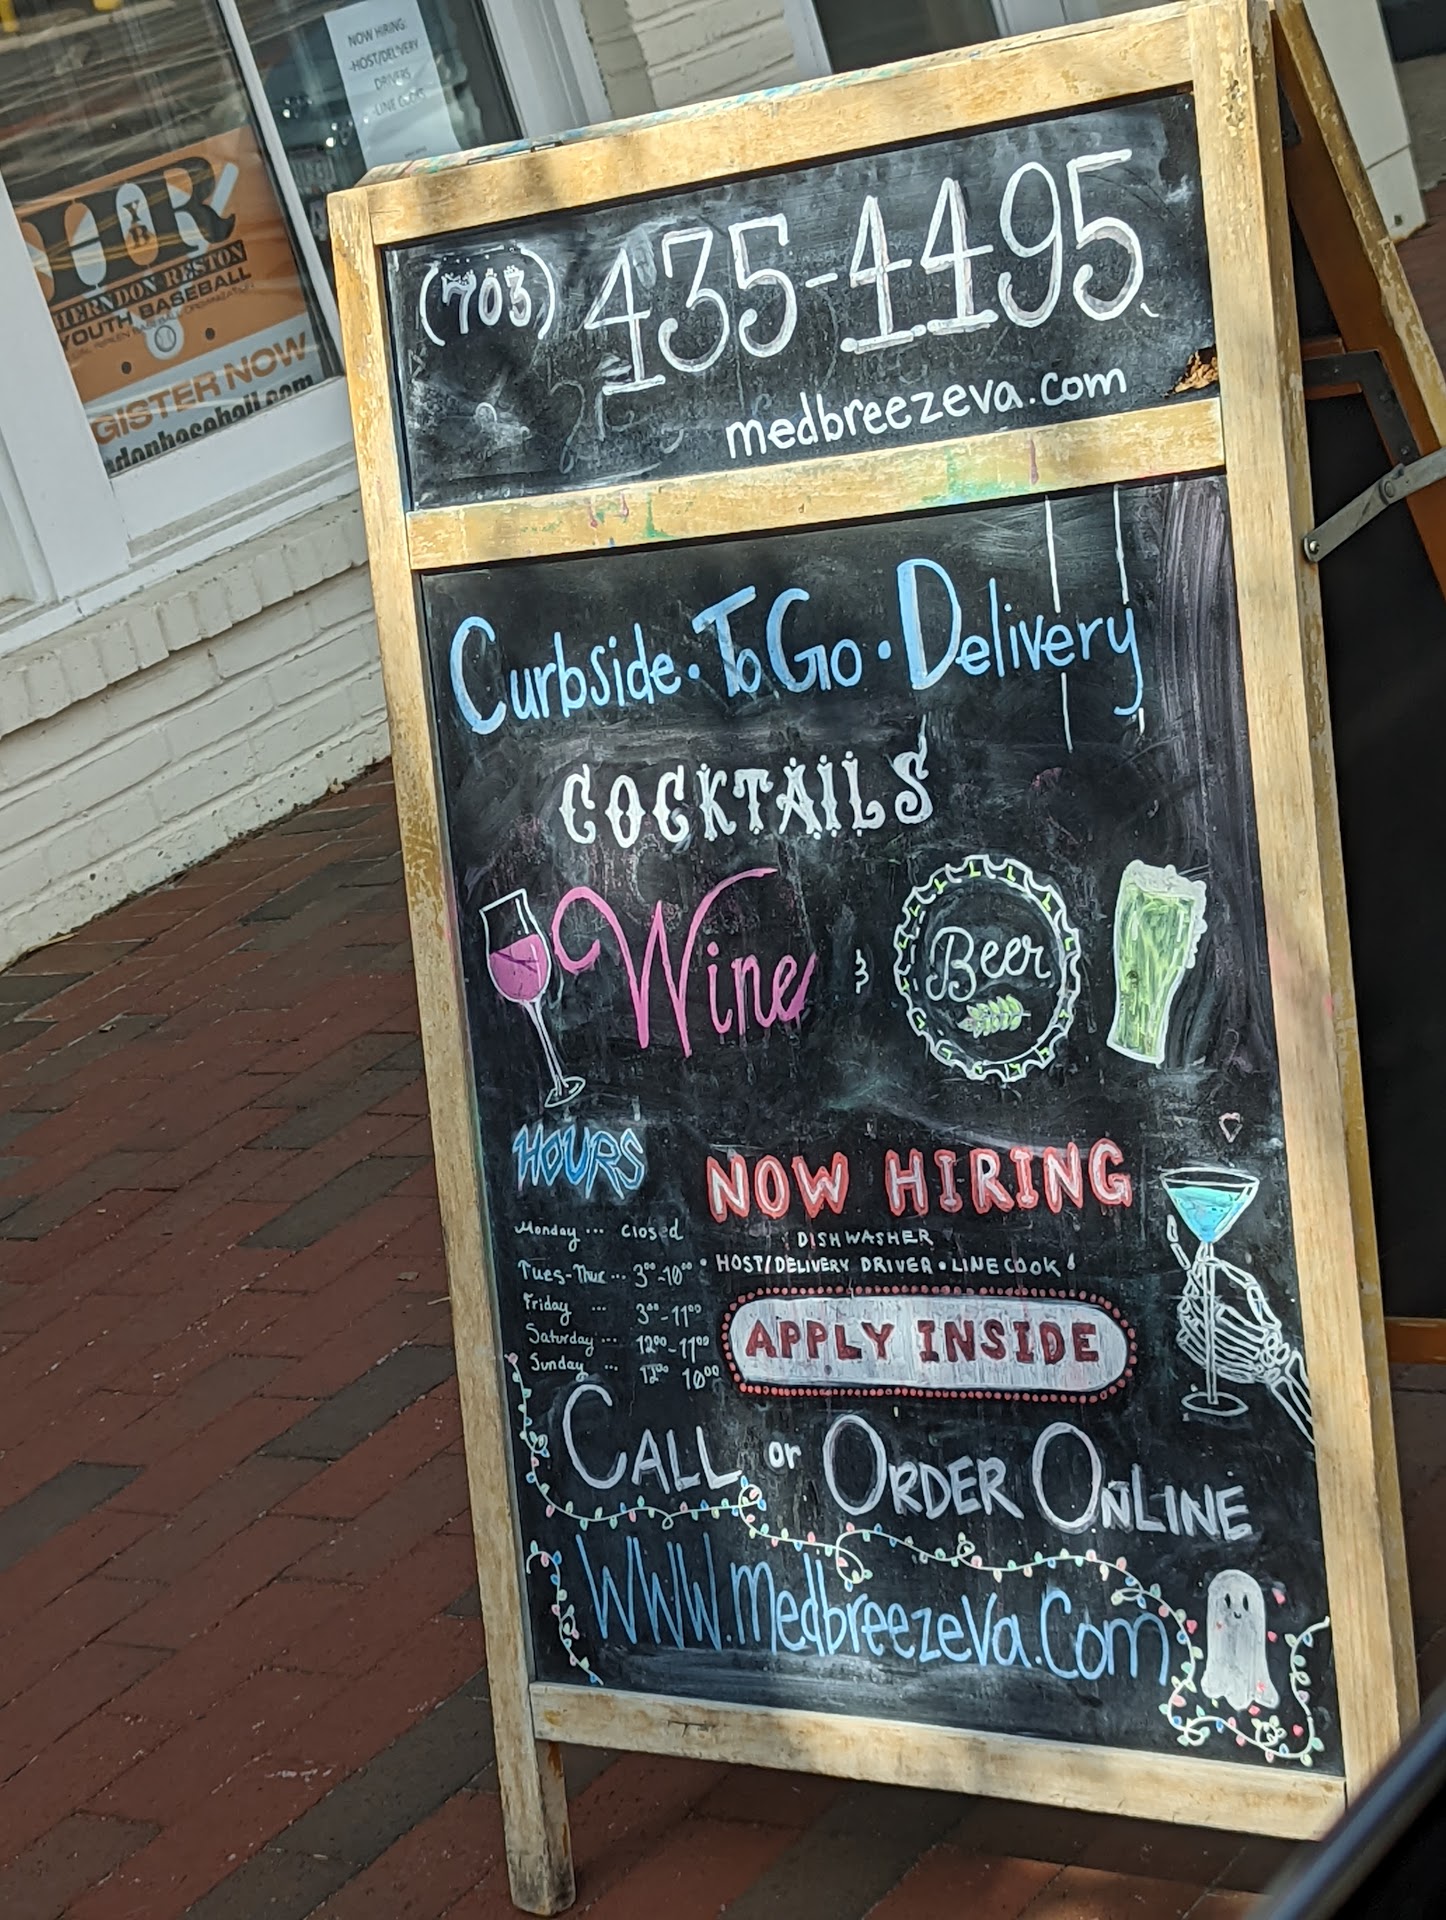 NOW HIRING:
-HOST/DELIVERY
DRIVERS
- LINE COOKS
HR
YB
HERNDON RESTON
YOUTH BASEBALL
GISTER NOW
donbaseball.com
(703) 435-4495
medbreezeva.com
Curbside · To Go · Delivery
COCKTAILS
Wine & Beer
HOURS
Monday ... closed
Tues-Thur ... 3⁰⁰-10⁰⁰
Friday ... 3⁰⁰-11⁰⁰
Saturday ... 12⁰⁰-11⁰⁰
Sunday ... 12⁰⁰ 10⁰⁰
NOW HIRING
DISHWASHER
• HOST/DELIVERY DRIVER • LINE COOK !
APPLY INSIDE
CALL or ORDER ONLINE
WWW.medbreezeva.com